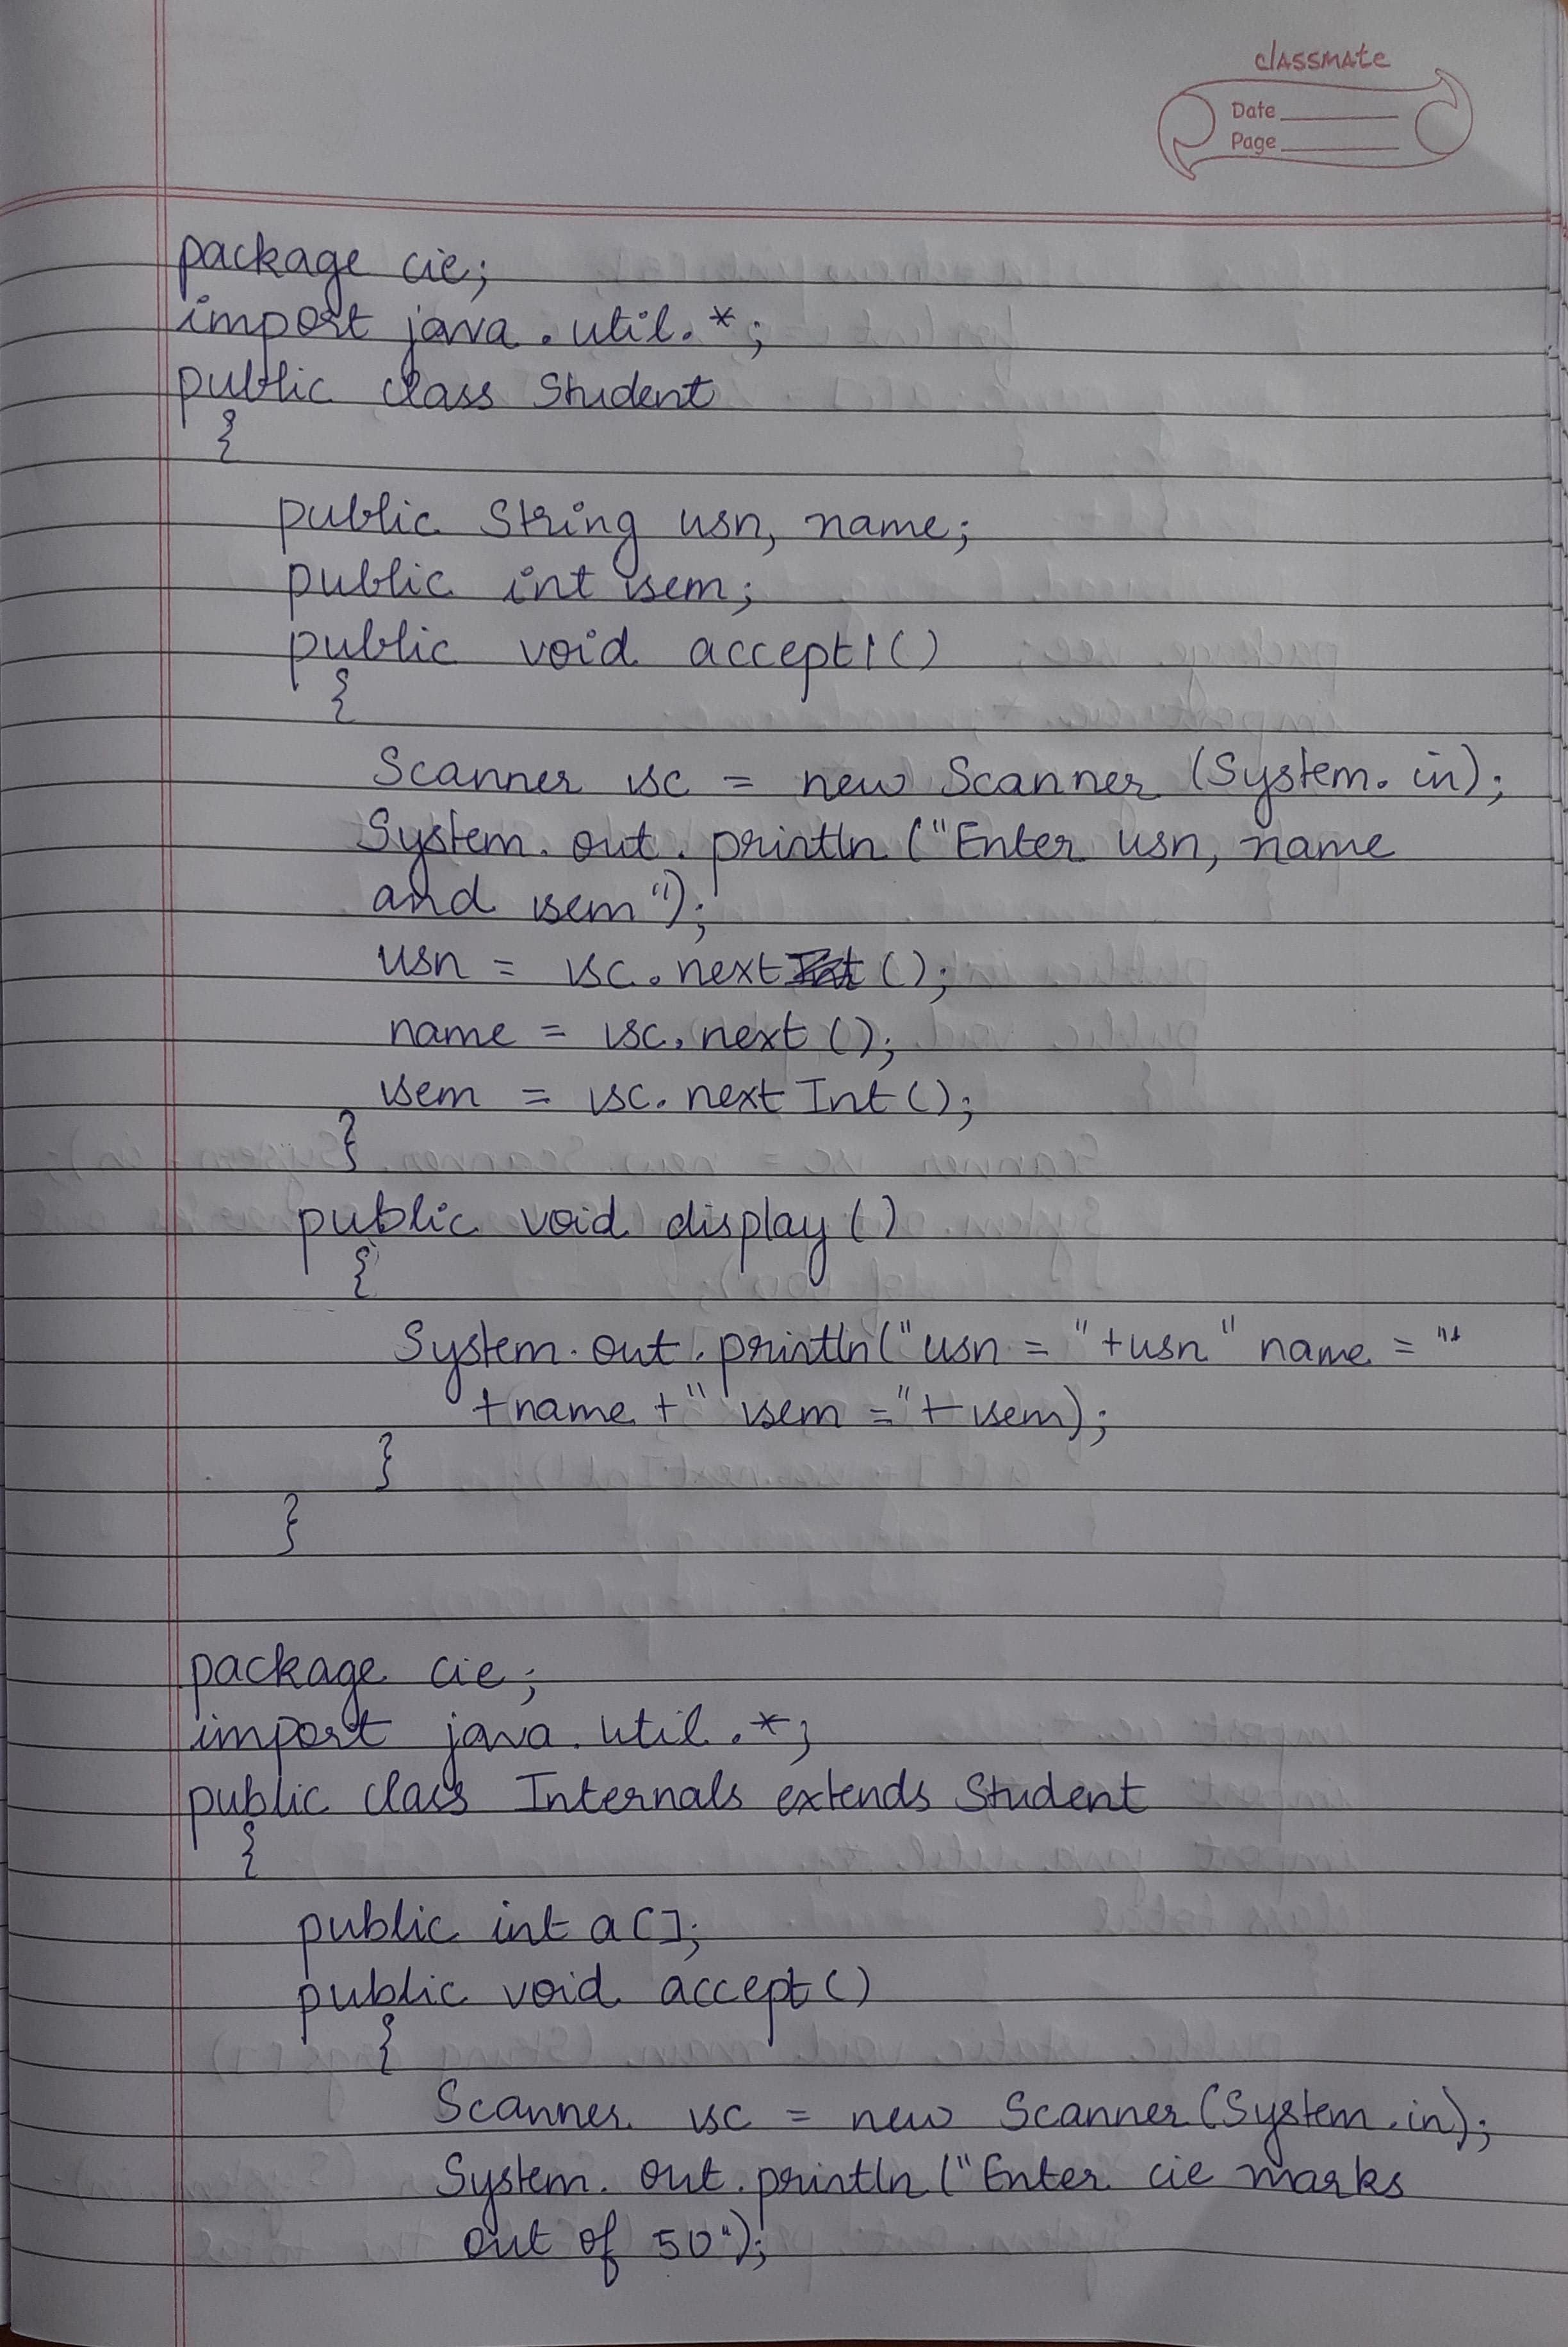 classmate
Date
Page
package cie;
import java.util.*;
public class Student
{
public String usn, name;
public int sem;
public void accept1()
{
Scanner sc = new Scanner (System.in);
System.out.println ("Enter usn, name
and sem");
usn = sc.next ();
name = sc.next ();
sem = sc.nextInt();
}
public void display()
{
System.out.println("usn = "+usn" name = "
+name +" sem ="+sem);
}
}
package cie;
import java.util.*;
public class Internals extends Student
{
public int a[];
public void accept()
{
Scanner sc = new Scanner(System.in);
System.out.println("Enter cie marks
out of 50");